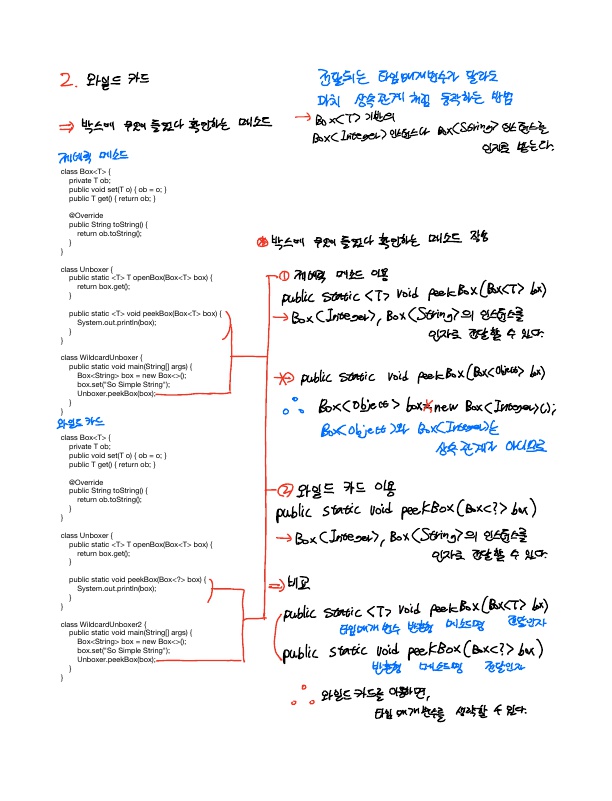 2. 와일드 카드
전달되는 타입매개변수가 달라도
마치 상속관계처럼 동작하는 방법
⇒ 박스에 무엇이 들었나 확인하는 메소드
→ Box<T> 기반의
Box<Integer> 인스턴스나 Box<String> 인스턴스를
인자로 받는다.
제네릭 메소드
class Box<T> {
private T ob;
public void set(T o) { ob = o; }
public T get() { return ob; }
@Override
public String toString() {
return ob.toString();
}
}
class Unboxer {
public static <T> T openBox(Box<T> box) {
return box.get();
}
public static <T> void peekBox(Box<T> box) {
System.out.println(box);
}
}
class WildcardUnboxer {
public static void main(String[] args) {
Box<String> box = new Box<>();
box.set("So Simple String");
Unboxer.peekBox(box);
}
}
와일드 카드
class Box<T> {
private T ob;
public void set(T o) { ob = o; }
public T get() { return ob; }
@Override
public String toString() {
return ob.toString();
}
}
class Unboxer {
public static <T> T openBox(Box<T> box) {
return box.get();
}
public static void peekBox(Box<?> box) {
System.out.println(box);
}
}
class WildcardUnboxer2 {
public static void main(String[] args) {
Box<String> box = new Box<>();
box.set("So Simple String");
Unboxer.peekBox(box);
}
}
※ 박스에 무엇이 들었나 확인하는 메소드 작성
① 제네릭 메소드 이용
public static <T> void peekBox(Box<T> box)
→ Box<Integer>, Box<String>의 인스턴스를
인자로 전달할 수 있다.
public static void peekBox(Box<Object> box)
∴ Box<Object> box = new Box<Integer>();
Box<Object>와 Box<Integer>는
상속관계가 아니므로
② 와일드 카드 이용
public static void peekBox(Box<?> box)
→ Box<Integer>, Box<String>의 인스턴스를
인자로 전달할 수 있다.
⇒ 비교
public static <T> void peekBox(Box<T> box)
타입매개 변수 반환형 메소드명 전달인자
public static void peekBox(Box<?> box)
반환형 메소드명 전달인자
∴ 와일드 카드를 이용하면,
타입 매개변수를 생략할 수 있다.